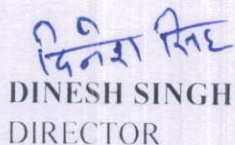 दिनेश सिंह
DINESH SINGH
DIRECTOR